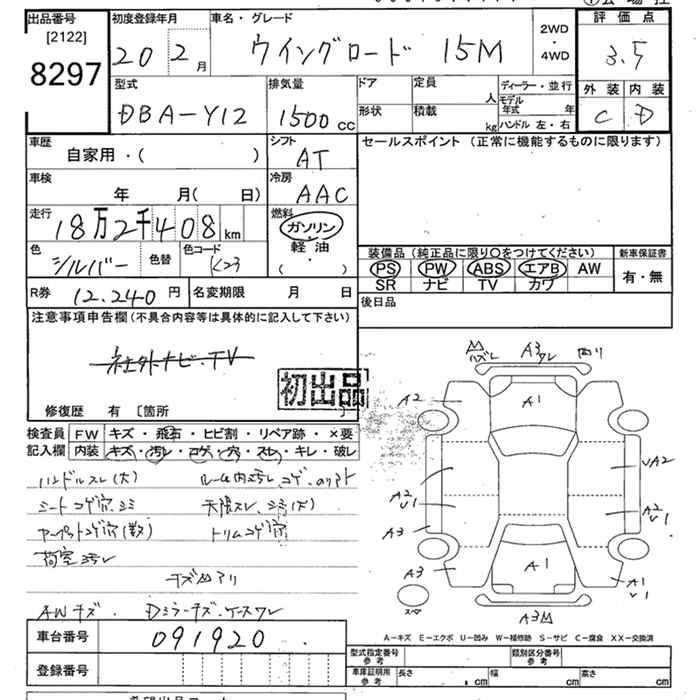 出品番号 [2122] 8297
初度登録年月 20 2月
車名・グレード ウイングロード 15M
2WD・4WD
評価点 3.5
外装 C 内装 D
型式 DBA-Y12
排気量 1500cc
ドア 形状
定員 人
積載 kg
ディーラー・並行
モデル年式 年
ハンドル 左・右
車歴 自家用・( )
シフト AT
セールスポイント (正常に機能するものに限ります)
車検 年 月(日)
冷房 AAC
走行 18万2千408km
燃料 ガソリン 軽油 (・)
色 シルバー 色替
色コード K23
装備品 (純正品に限り○をつけてください)
PS PW ABS エアB AW
SR ナビ TV カワ
新車保証書 有・無
R券 12.240円
名変期限 月 日
後日品
注意事項申告欄 (不具合内容等は具体的に記入して下さい)
社外ナビ・TV
初出品
修復歴 有 [箇所 ]
検査員記入欄
FW キズ・飛石・ヒビ割・リペア跡・×要
内装 キズ・汚レ・コゲ・穴・スレ・キレ・破レ
ハンドルスレ(大) ルーム内汚レ コゲ・のりアト
シートコゲ穴・シミ 天張スレ・シミ(大)
カーペットコゲ穴(数) トリムコゲ穴
荷室汚レ
AWキズ・Dミラーキズ・ケースワレ
A3
A2
A1
A2
U1
A3
A3
A1
A3
UA2
A2
U1
A1
U1
A-キズ E-エクボ U-凹み W-補修跡 S-サビ C-腐食 XX-交換済
車台番号 091920
登録番号
型式指定番号 参考
類別区分番号 参考
車庫証明用 参考 長さ cm 幅 cm 高さ cm